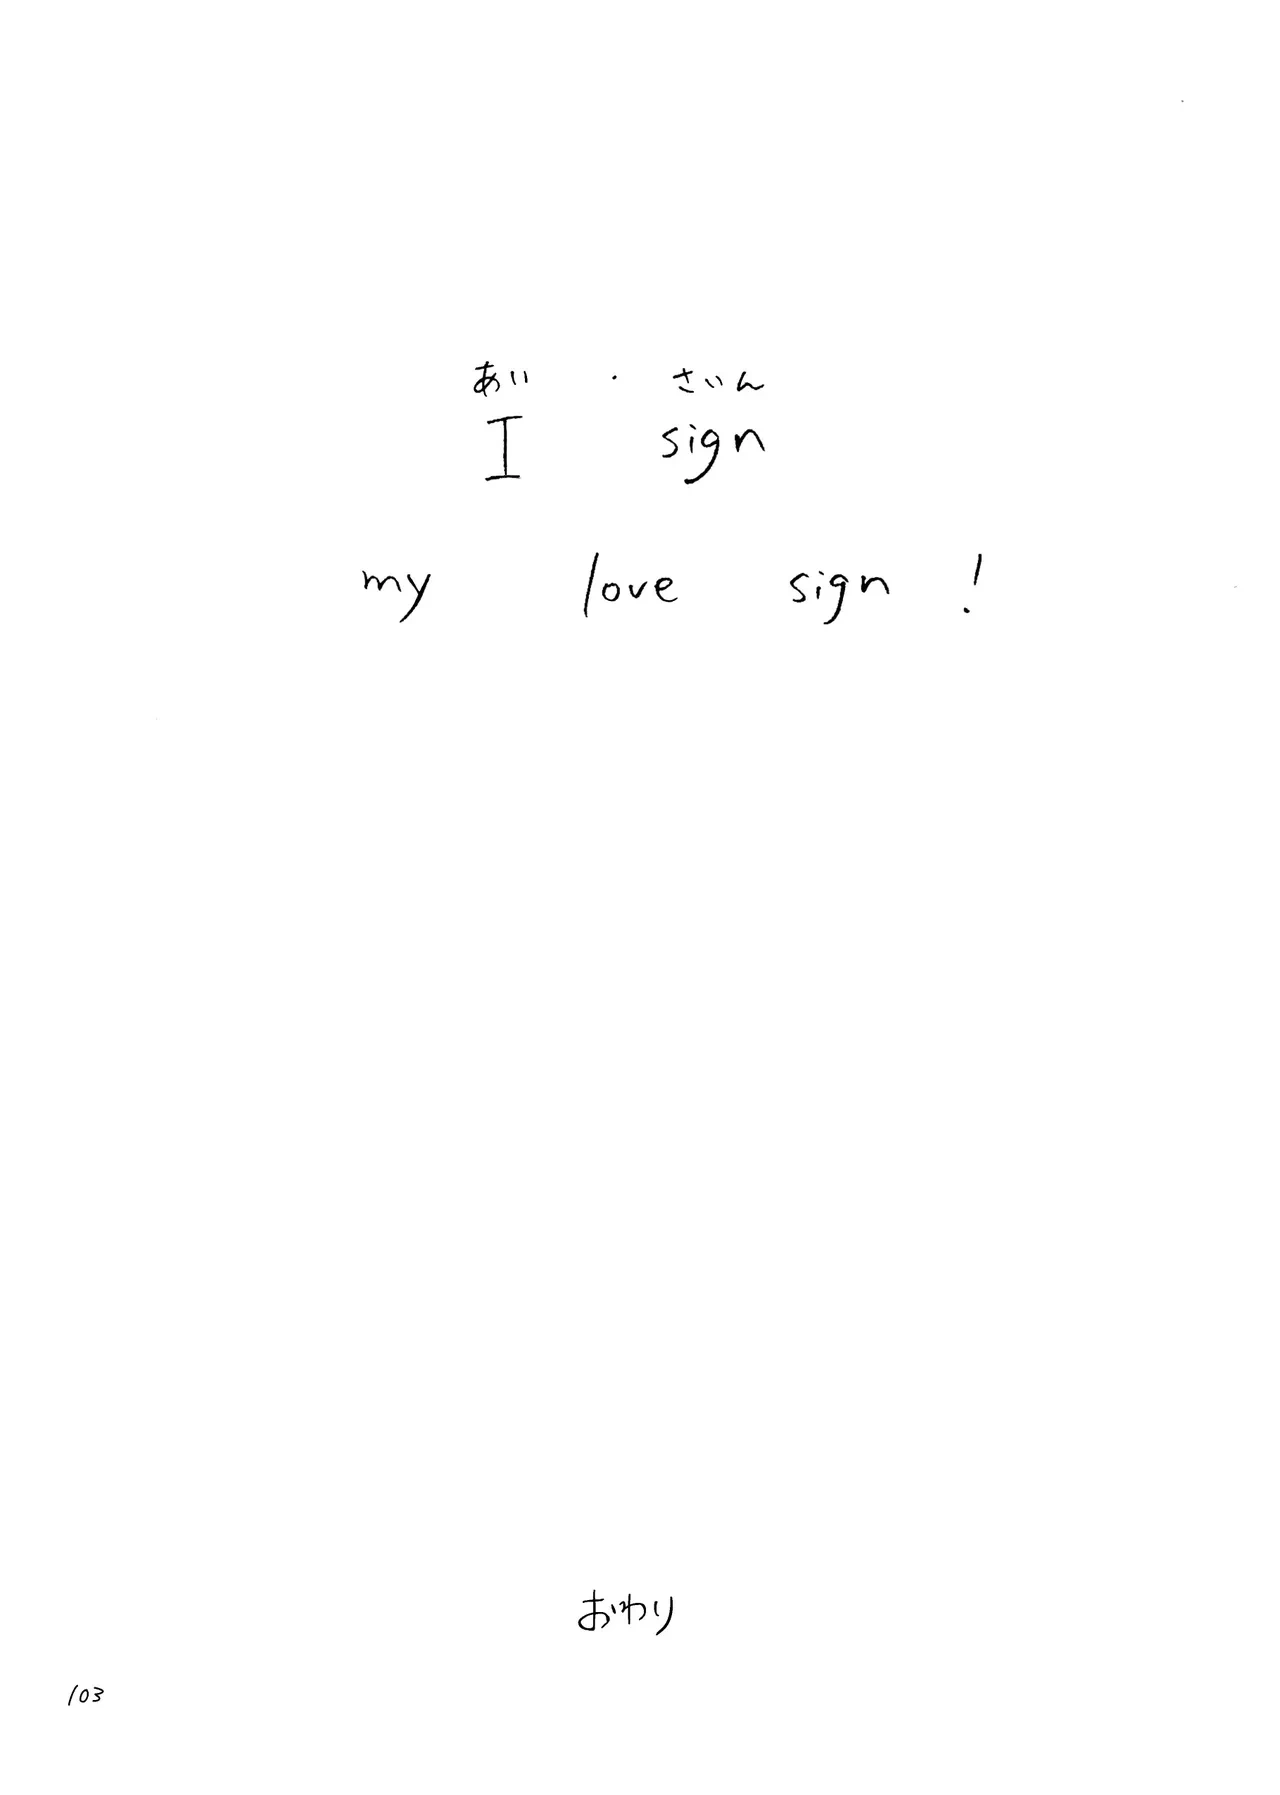 あい・さいん
I sign
my love sign!
おわり
103